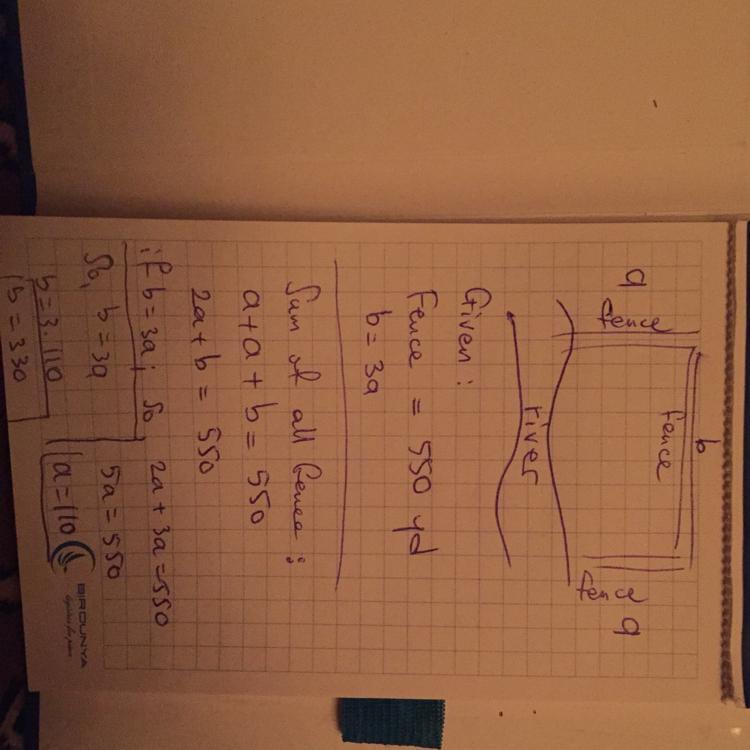 b
a fence fence fence a
river
Given:
Fence = 550 yd
b = 3a
Sum of all fence:
a+a+b = 550
2a+b = 550
if b=3a; so 2a+3a=550
So, b=3a 5a=550
b=3.110 a=110
b=330
BIRDUNYA